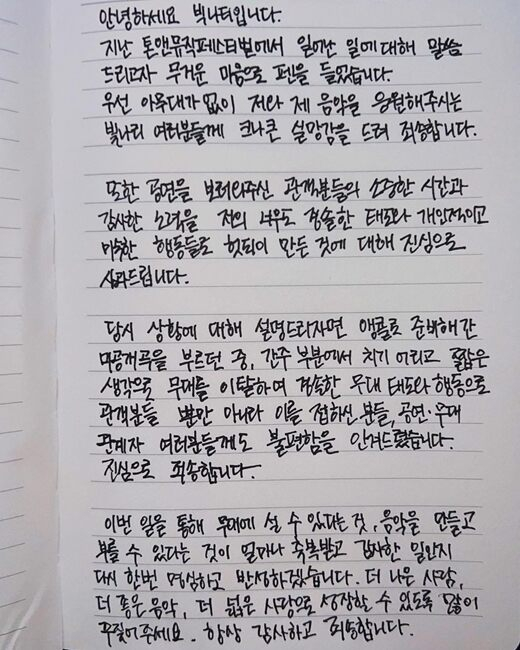 안녕하세요 빅나티입니다.
지난 톤앤뮤직페스티벌에서 일어난 일에 대해 말씀
드리고자 무거운 마음으로 펜을 들었습니다.
우선 아무대가 없이 저와 제 음악을 응원해주시는
빛나리 여러분들께 크나큰 실망감을 드려 죄송합니다.
또한 공연을 보러와주신 관객분들의 소중한 시간과
감사한 노력을 저의 너무도 경솔한 태도와 개인적이고
미숙한 행동들로 헛되이 만든 것에 대해 진심으로
사과드립니다.
당시 상황에 대해 설명드리자면 앵콜로 준비해간
미공개곡을 부르던 중, 간주 부분에서 치기 어리고 짧은
생각으로 무대를 이탈하여 경솔한 무대 태도와 행동으로
관객분들 뿐만 아니라 이를 접하신 분들, 공연·무대
관계자 여러분들께도 불편함을 안겨드렸습니다.
진심으로 죄송합니다.
이번 일을 통해 무대에 설 수 있다는 것, 음악을 만들고
부를 수 있다는 것이 얼마나 축복받고 감사한 일인지
다시 한번 명심하고 반성하겠습니다. 더 나은 사람,
더 좋은 음악, 더 넓은 사랑으로 성장할 수 있도록 많이
꾸짖어주세요. 항상 감사하고 죄송합니다.